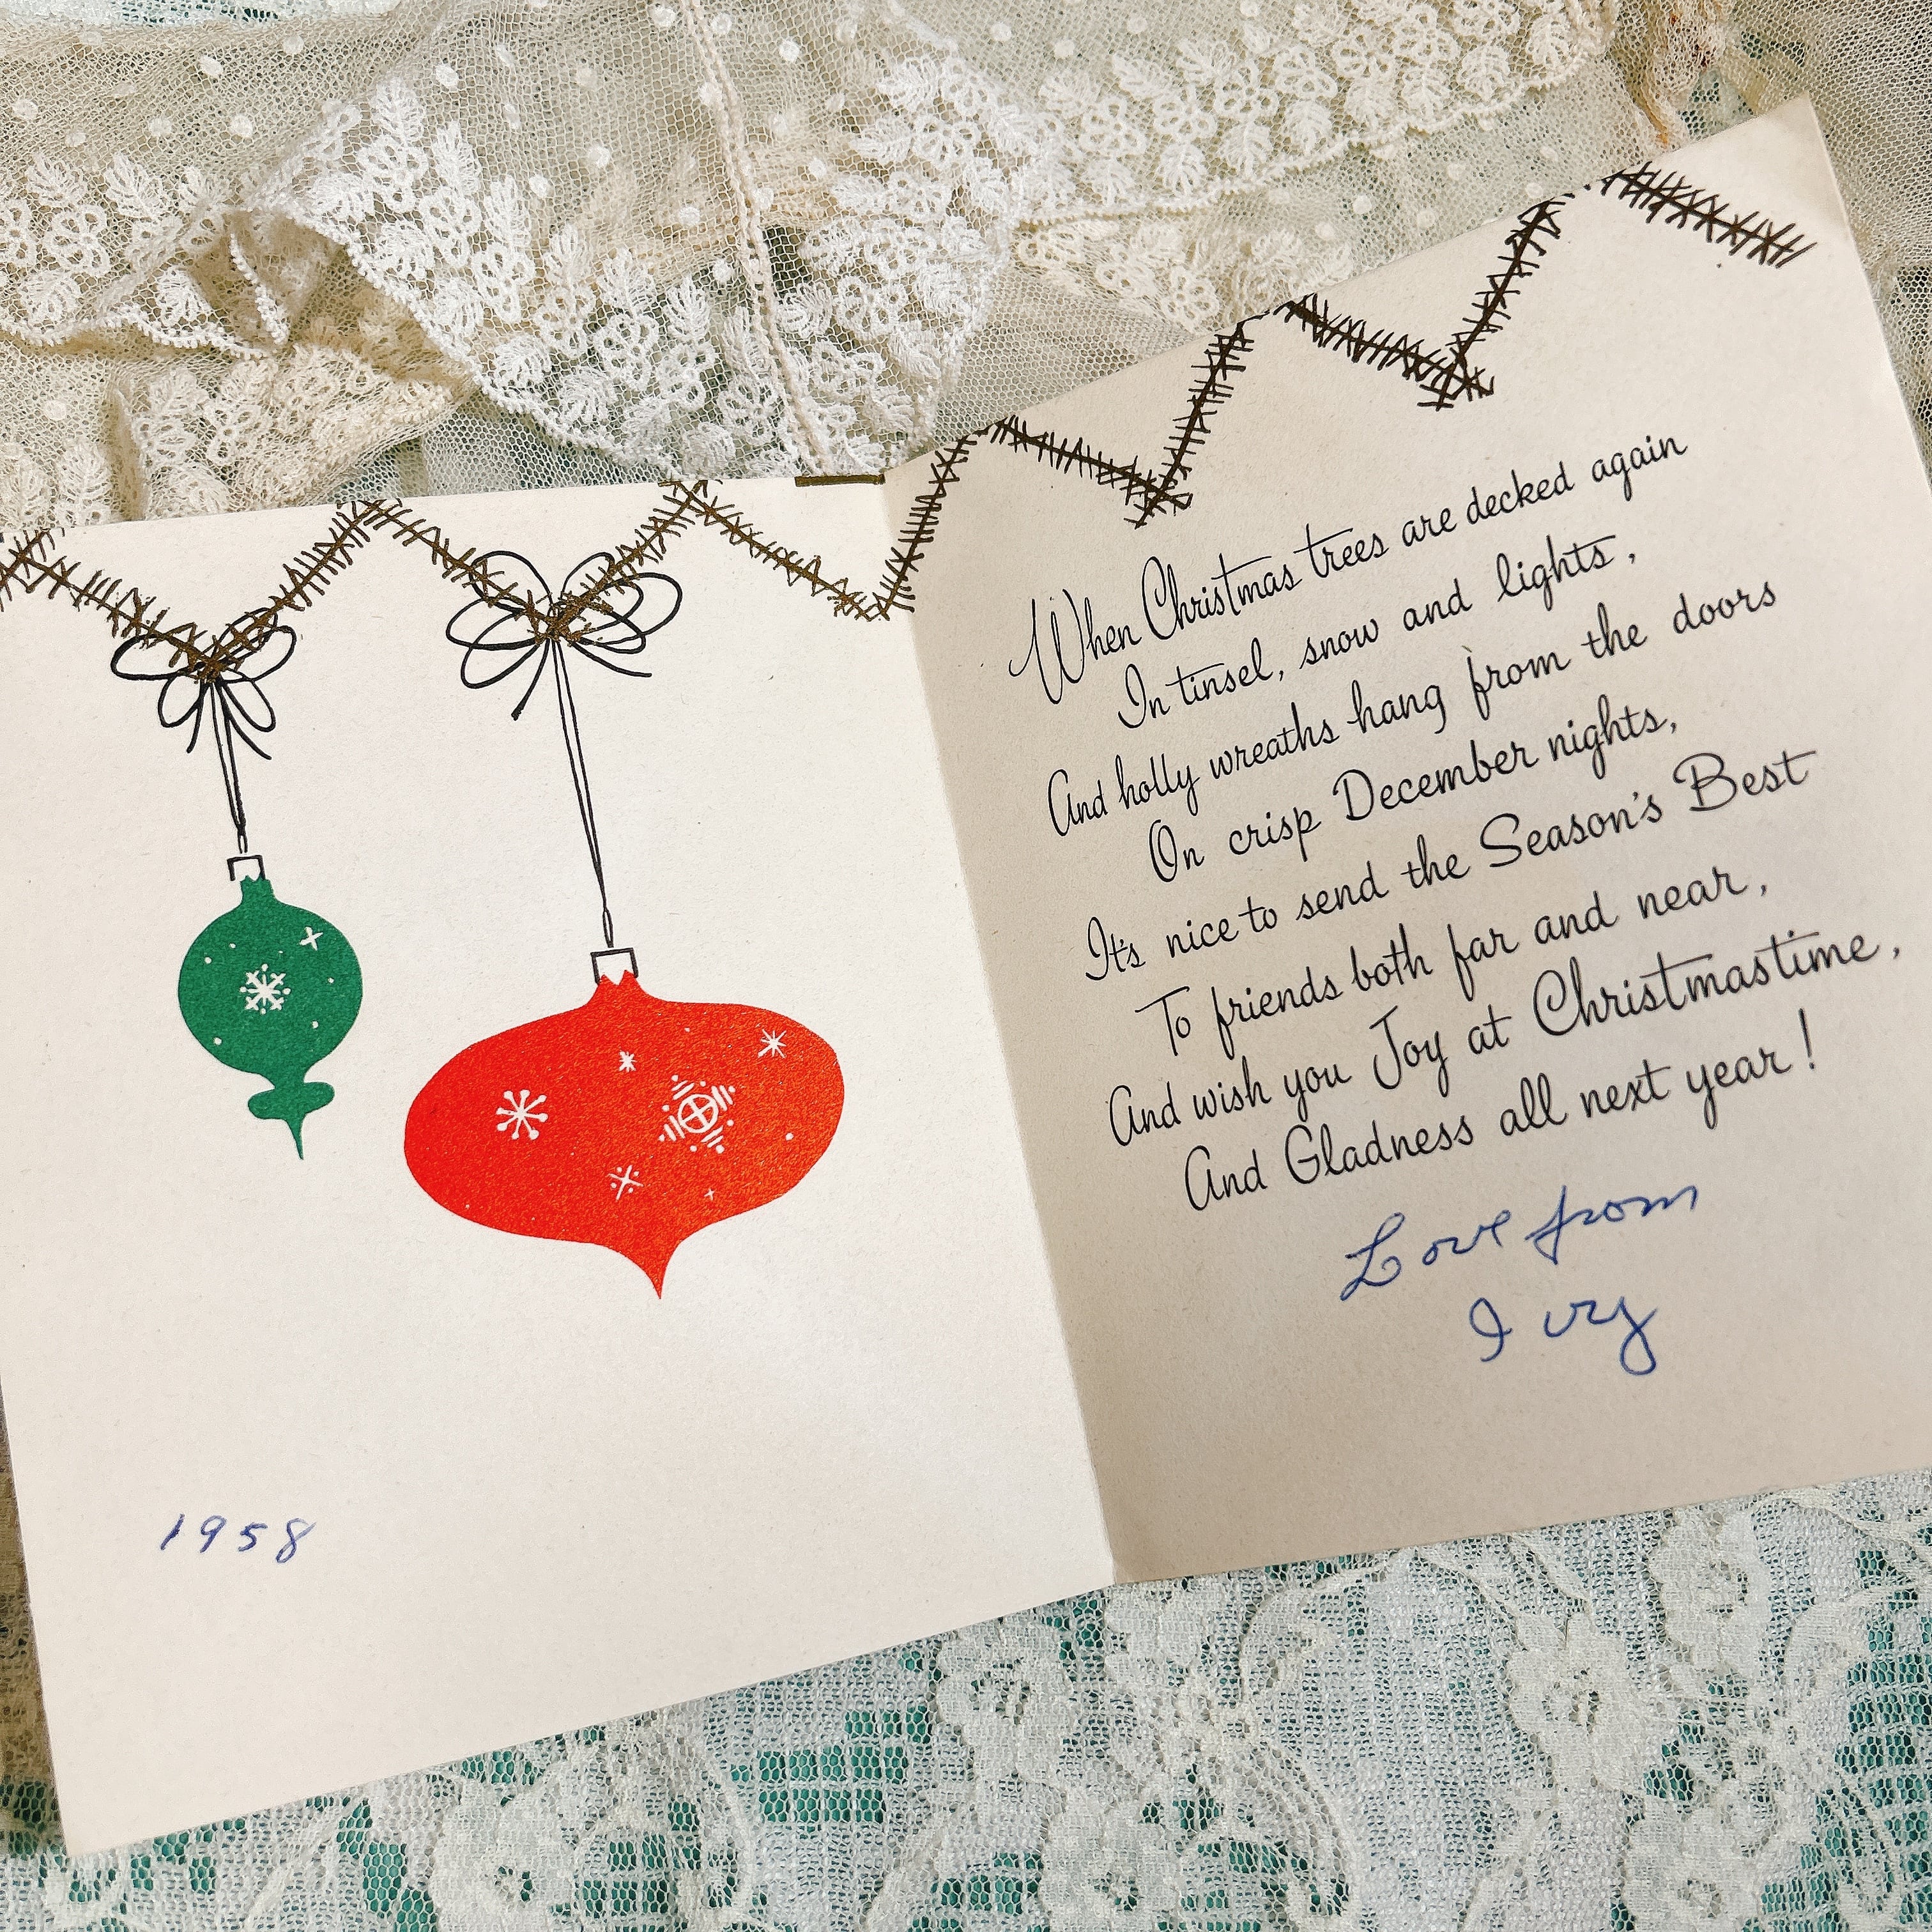 When Christmas trees are decked again
In tinsel, snow and lights,
And holly wreaths hang from the doors
On crisp December nights,
It's nice to send the Season's Best
To friends both far and near,
And wish you Joy at Christmastime,
And Gladness all next year!
Love from
Ivy
1958